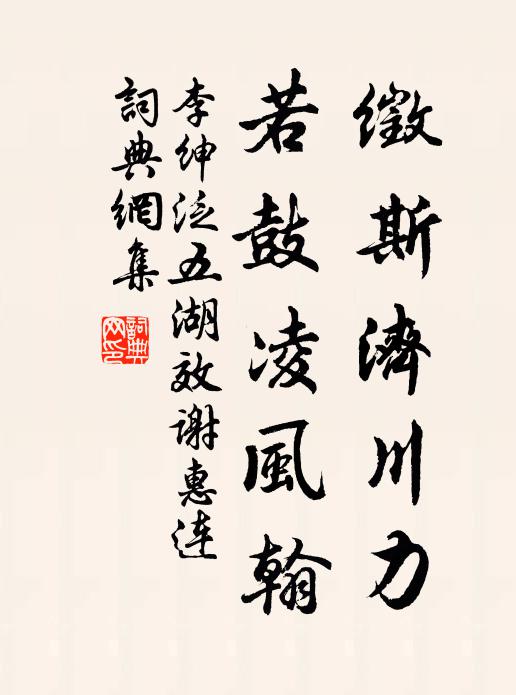 徵斯濟川力
若鼓凌風翰
李紳泛五湖效謝惠連
詞典網集
詞典網印